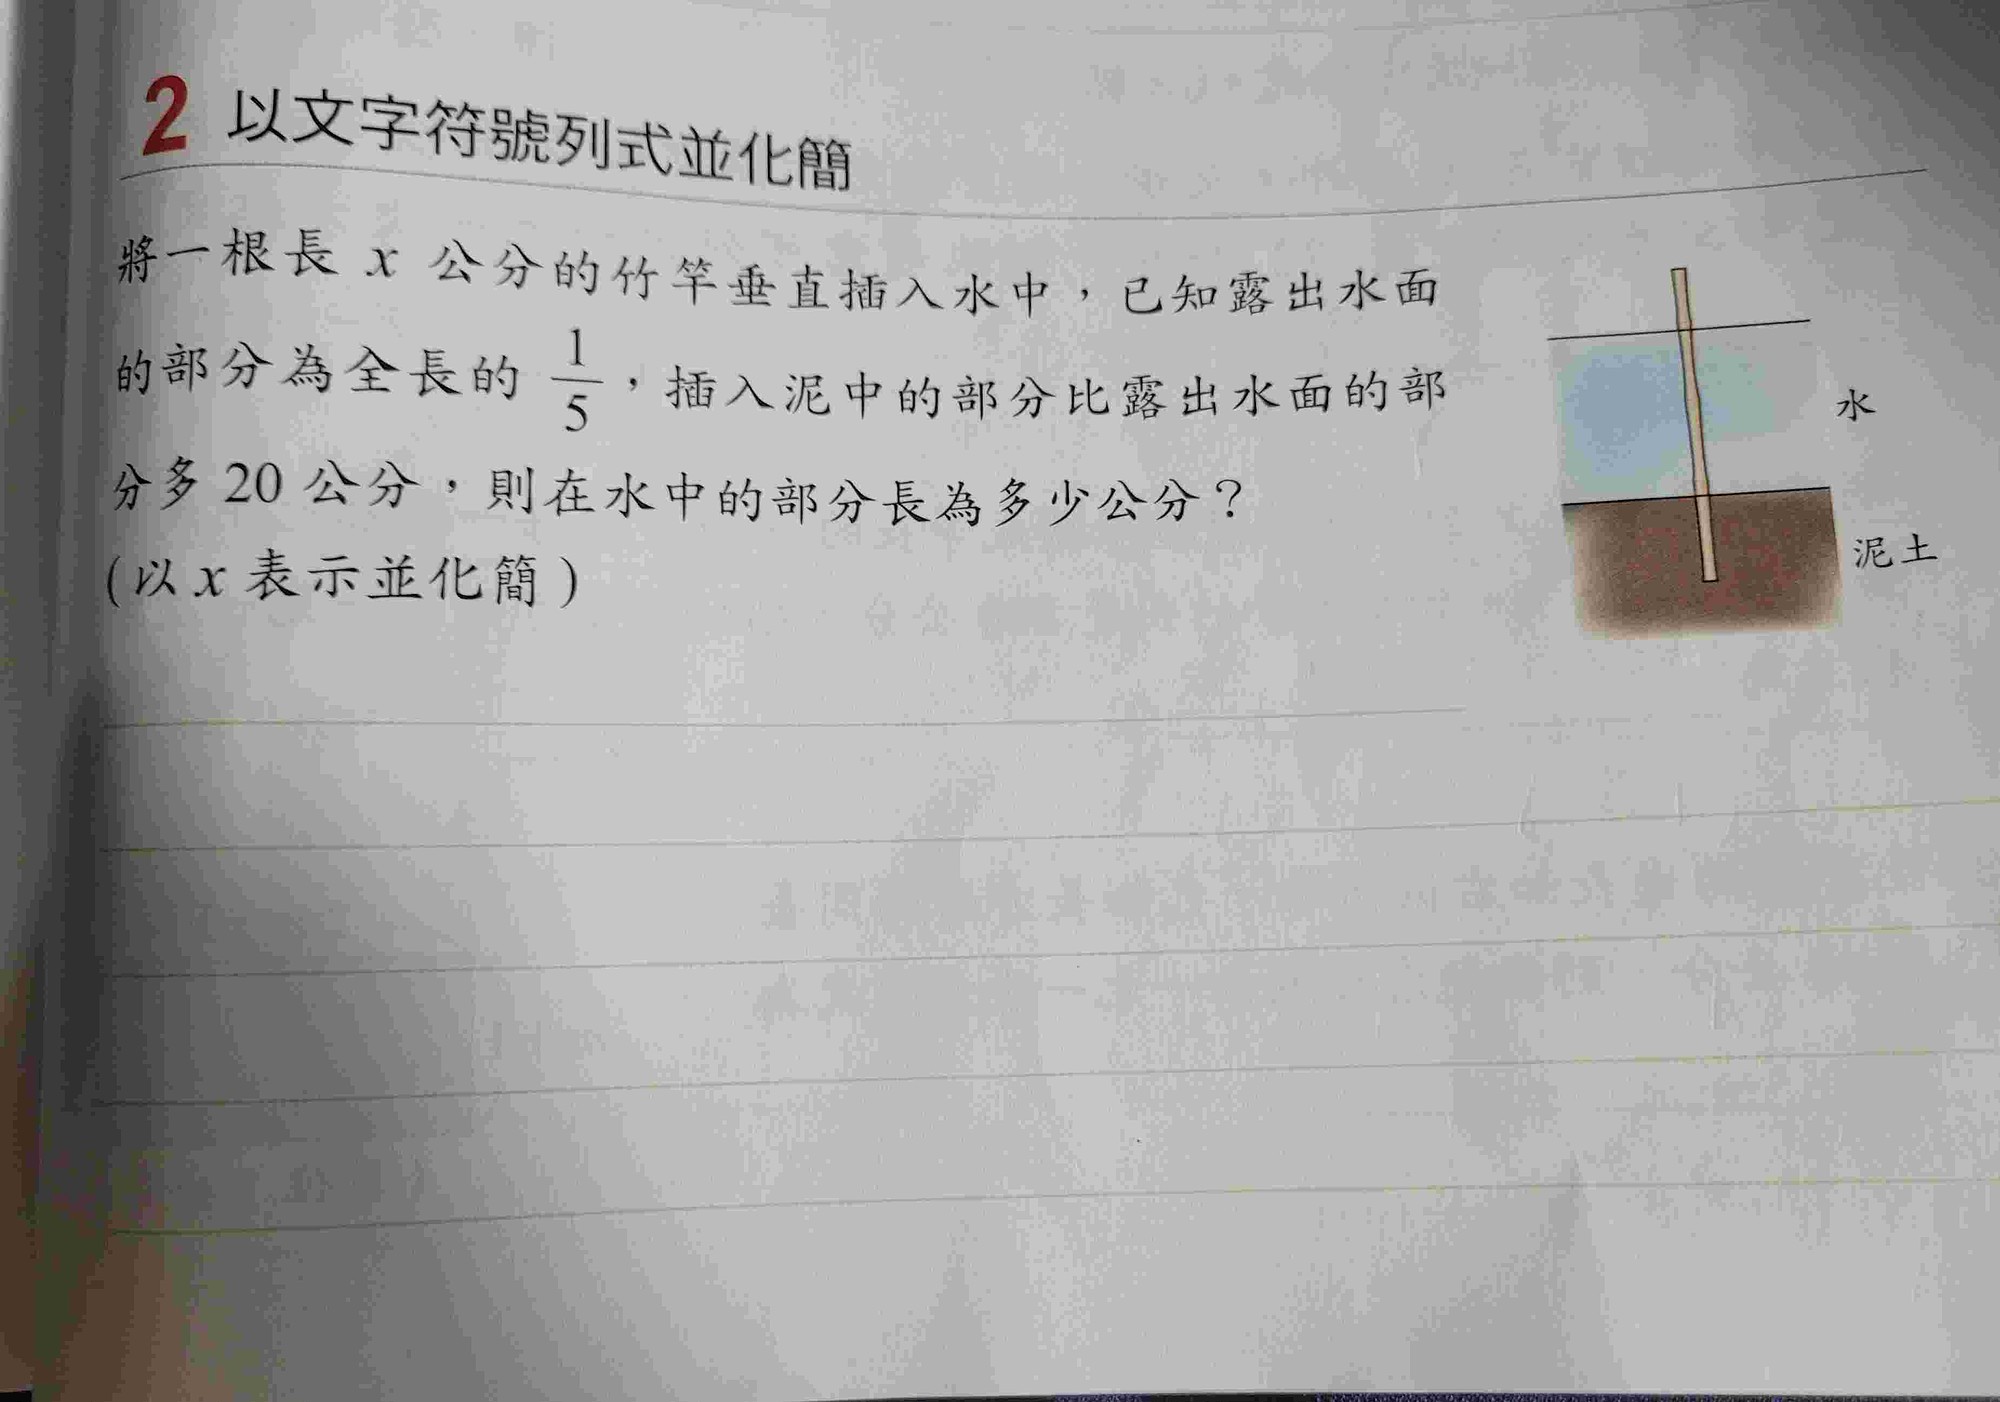 2 以文字符號列式並化簡
將一根長 x 公分的竹竿垂直插入水中，已知露出水面
的部分為全長的 1/5，插入泥中的部分比露出水面的部
分多 20 公分，則在水中的部分長為多少公分？
(以 x 表示並化簡)
水
泥土